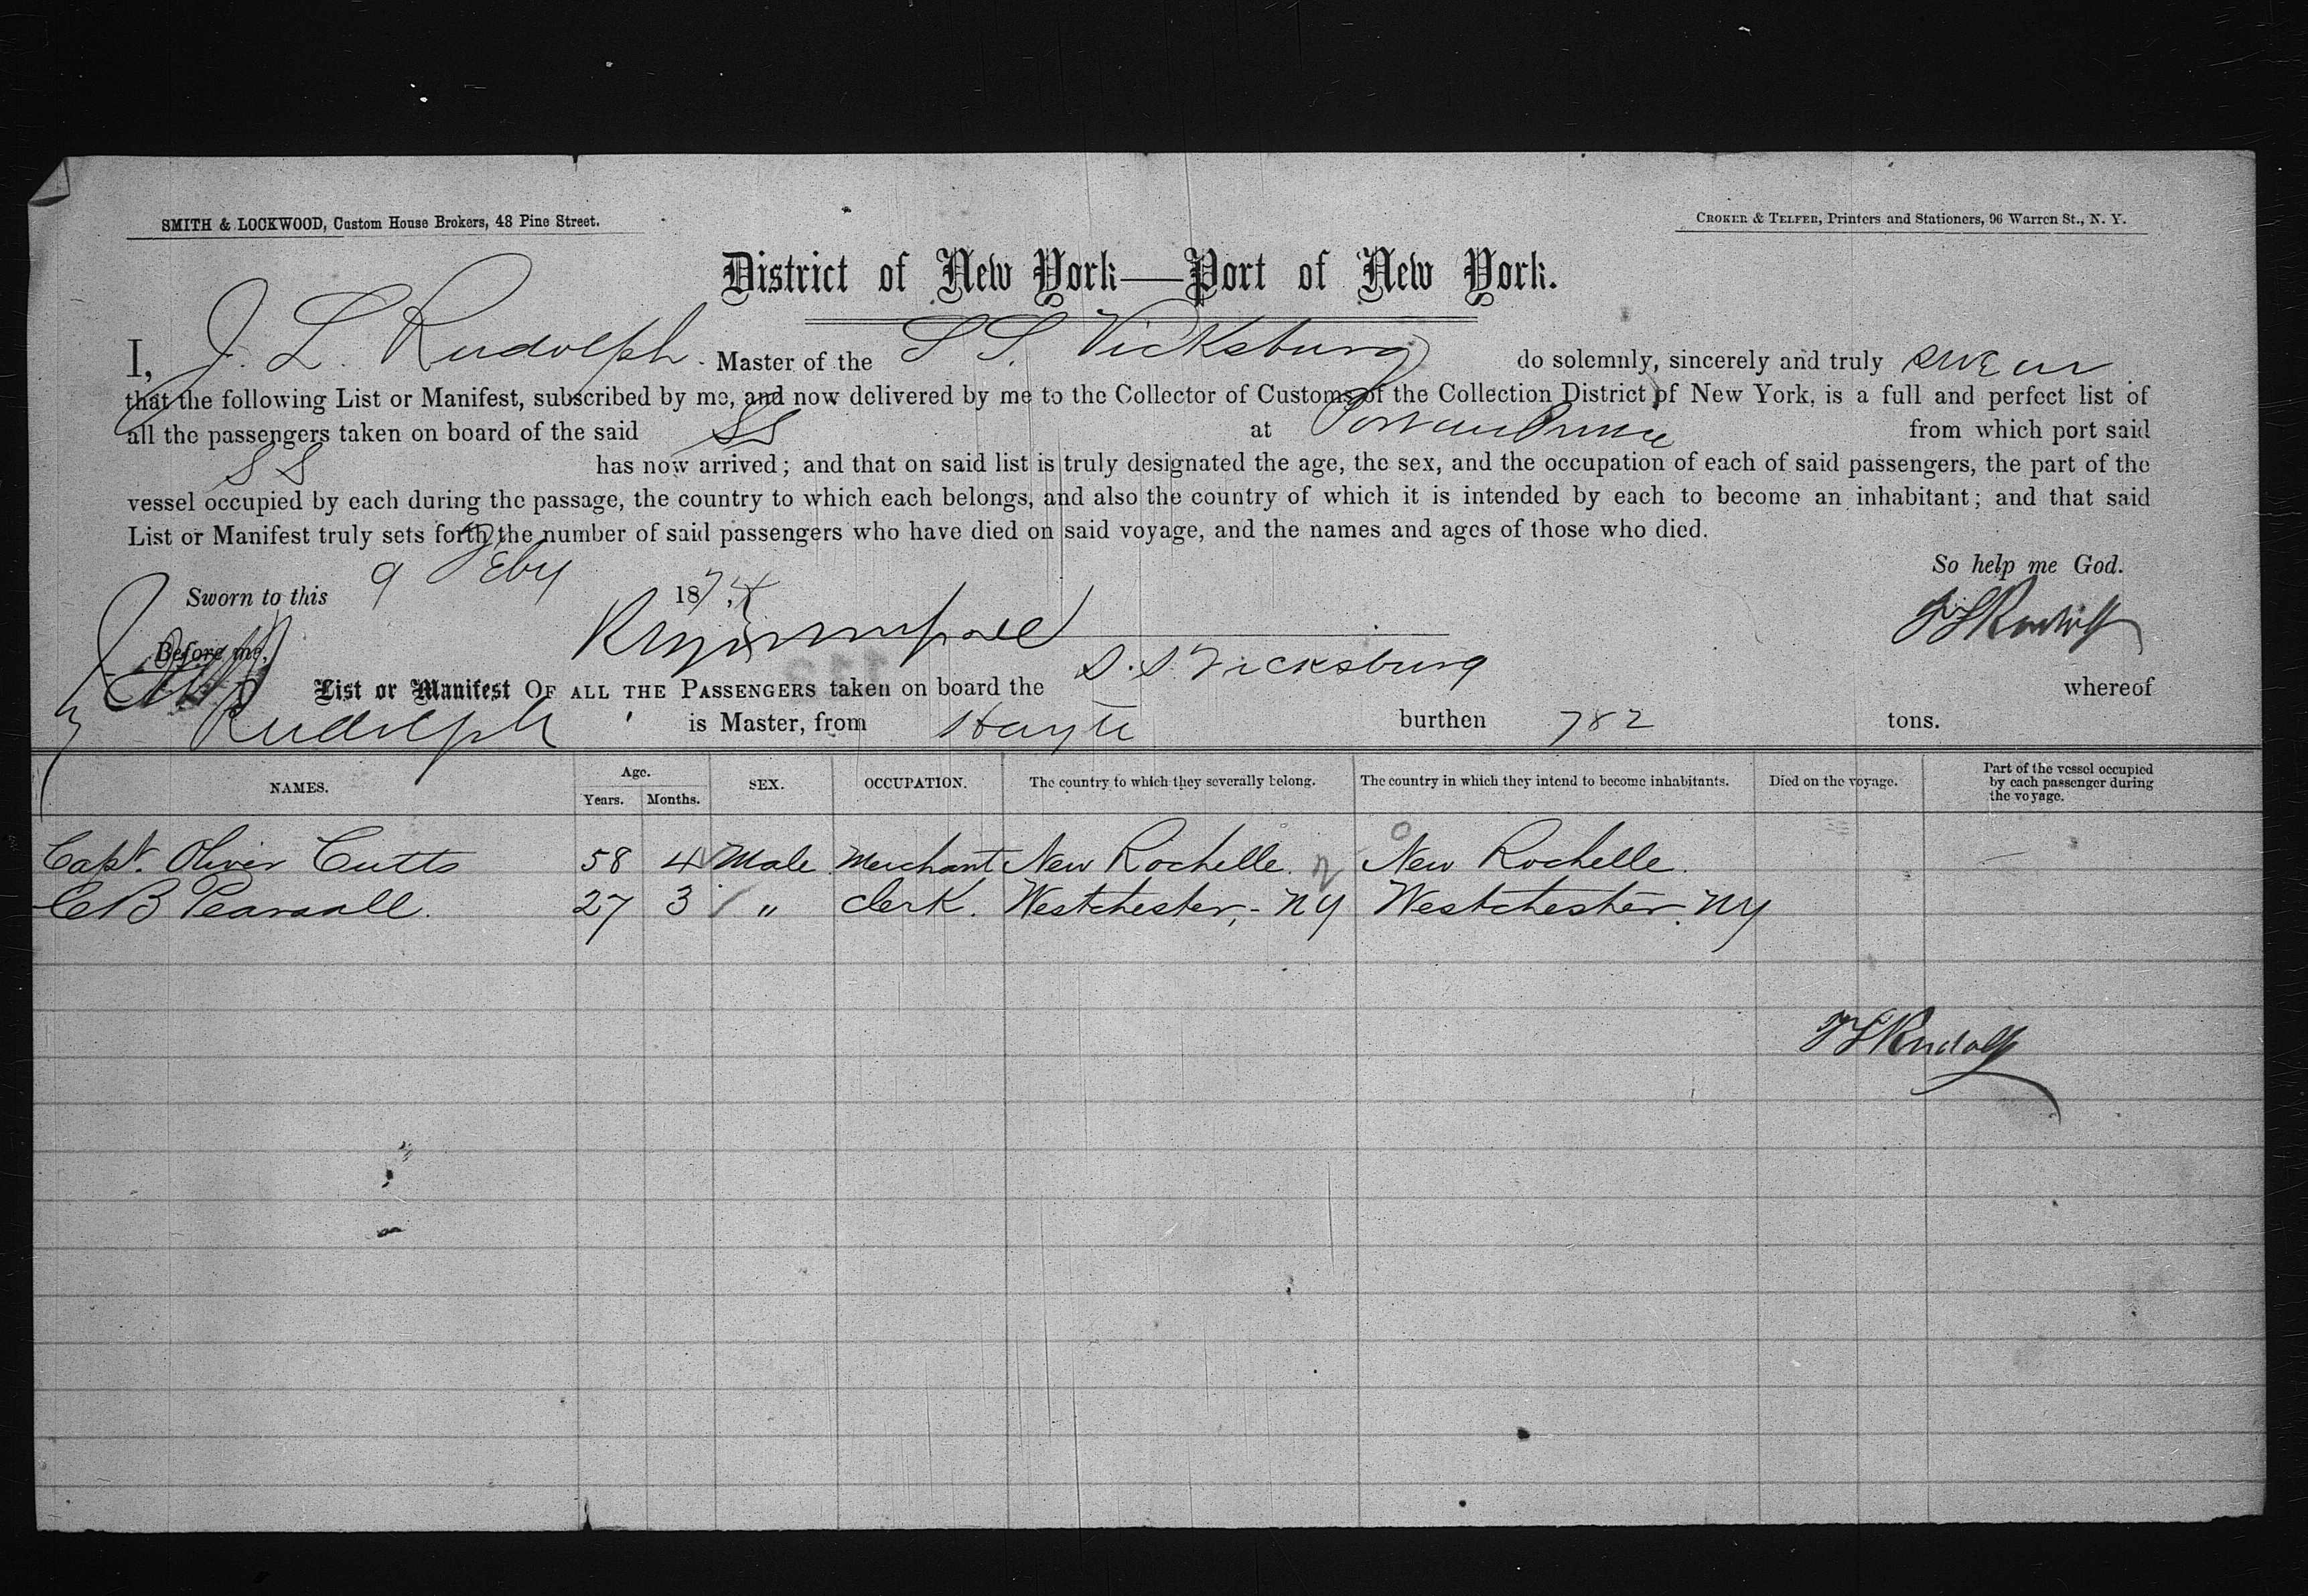 SMITH & LOCKWOOD, Custom House Brokers, 48 Pine Street.
CROKER & TELFER, Printers and Stationers, 96 Warren St., N. Y.
District of New York—Port of New York.
I, J. L. Rudolph Master of the S S. Vicksburg do solemnly, sincerely and truly swear
that the following List or Manifest, subscribed by me, and now delivered by me to the Collector of Customs of the Collection District of New York, is a full and perfect list of
all the passengers taken on board of the said SS at Port au Prince from which port said
SS has now arrived; and that on said list is truly designated the age, the sex, and the occupation of each of said passengers, the part of the
vessel occupied by each during the passage, the country to which each belongs, and also the country of which it is intended by each to become an inhabitant; and that said
List or Manifest truly sets forth the number of said passengers who have died on said voyage, and the names and ages of those who died.
So help me God.
Sworn to this 9 Feby 1874
J L Rudolph
Before me,
List or Manifest OF ALL THE PASSENGERS taken on board the S. S. Vicksburg whereof
Rudolph is Master, from Hayti burthen 782 tons.
NAMES. Age. Years. Months. SEX. OCCUPATION. The country to which they severally belong. The country in which they intend to become inhabitants. Died on the voyage. Part of the vessel occupied by each passenger during the voyage.
Capt. Oliver Cutts 58 4 Male Merchant New Rochelle. New Rochelle.
C B Pearsall. 27 3 " Clerk. Westchester, - NY Westchester. NY
J L Rudolph